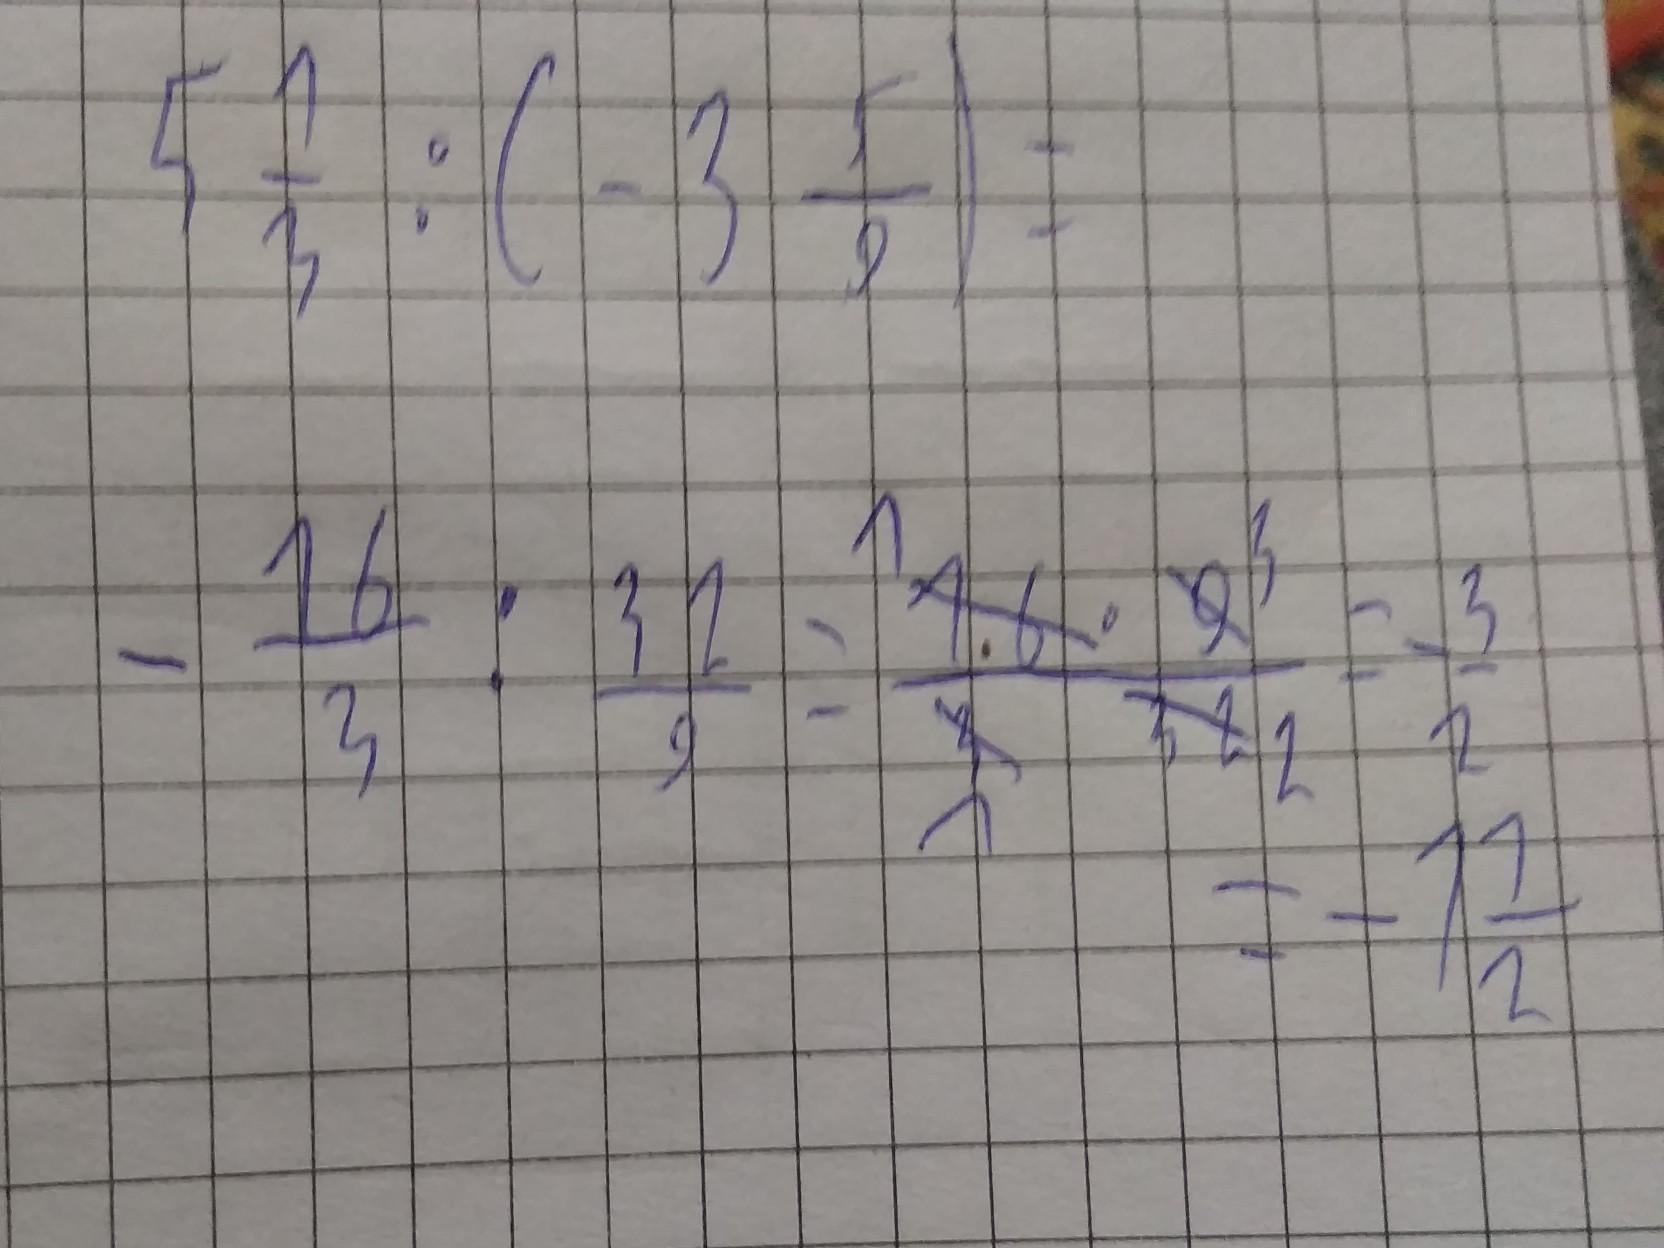 5 1/3 : (-3 5/9) =
- 16/3 : 32/9 = 1 16 · 9 3 / 3 1 · 32 2 = - 3/2
= - 1 1/2